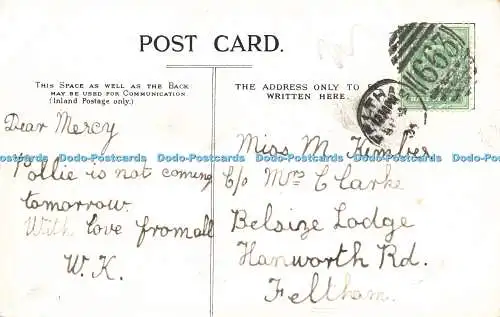 POST CARD.
THIS SPACE AS WELL AS THE BACK
MAY BE USED FOR COMMUNICATION.
(Inland Postage only.)
THE ADDRESS ONLY TO
WRITTEN HERE.
667
Dear Mercy
Pollie is not coming
tomorrow.
With love from all
W.K.
Miss M. Kimber
C/o Mrs Clarke
Belsize Lodge
Hanworth Rd.
Feltham.
Dodo-Postcards Dodo-Postcards Dodo-Postcards Dodo-Postcards Dodo-Postcards Dodo-Postcards